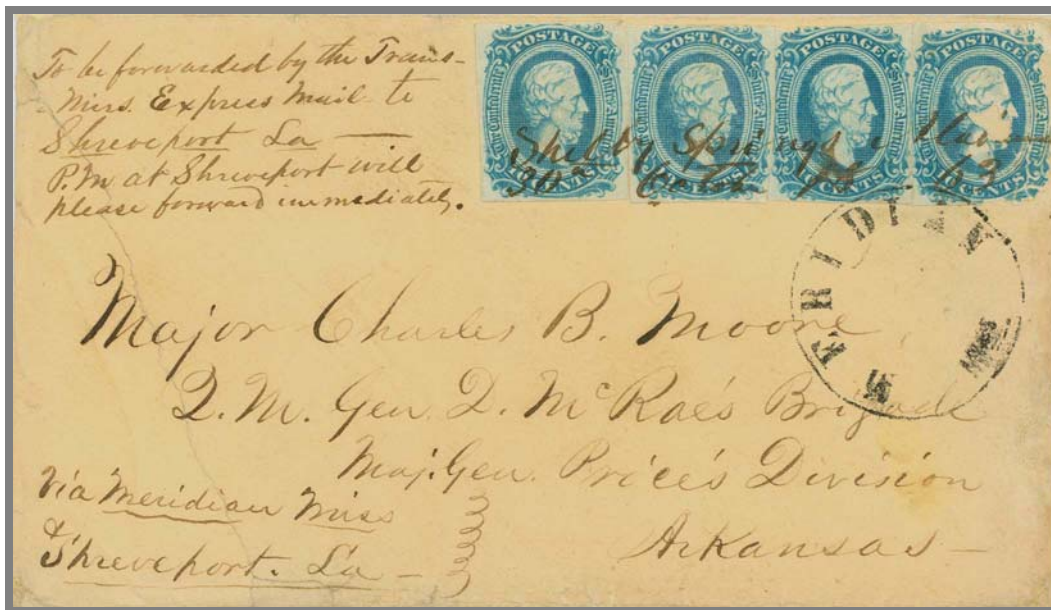 To be forwarded by the Trans-
Miss. Express Mail to
Shreveport La —
P.M at Shreveport will
please forward immediately.
POSTAGE POSTAGE POSTAGE POSTAGE
The Confederate States of America
CENTS CENTS CENTS CENTS
Shelby Springs Alabama
30th Octob 63
MERIDIAN
MISS
Major Charles B. Moore
Q.M. Gen. D. McRae's Brigade
Maj. Gen. Price's Division
Arkansas —
Via Meridian Miss
& Shreveport. La —